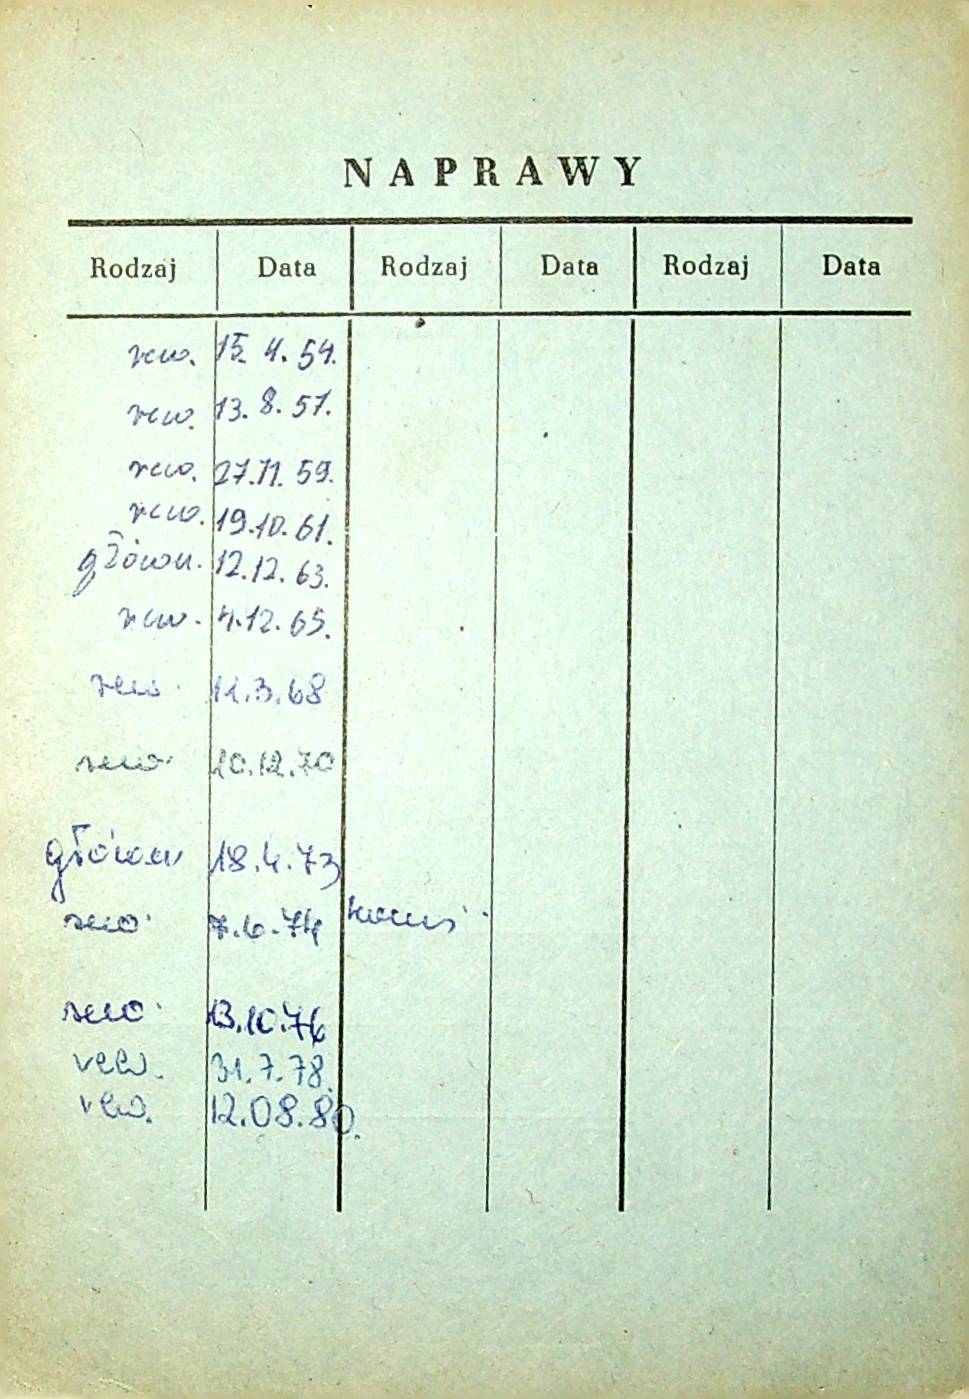 NAPRAWY
Rodzaj Data Rodzaj Data Rodzaj Data
rew. 15. 4. 54.
rew. 13. 8. 57.
rew. 27.11. 59.
rew. 19.10.61.
główn. 12.12.63.
rew. 4.12.65.
rew. 11.3.68
rew. 10.12.70
główn 18.4.73
rew. 7.6.74
rew. 13.10.76
rew. 31.7.78.
rew. 12.08.80.